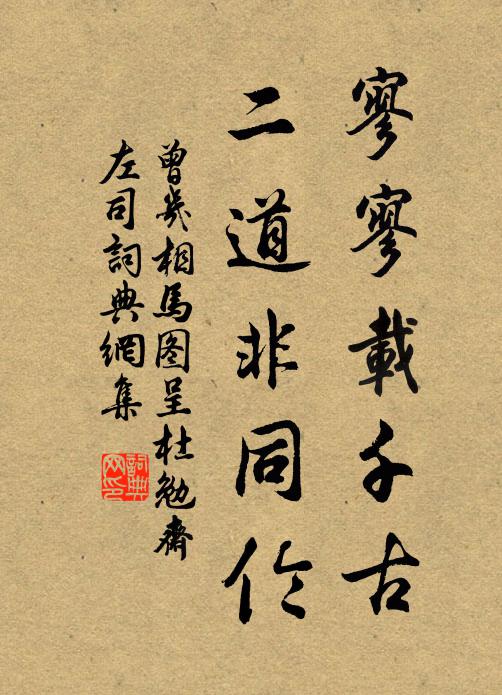 寥寥載千古
二道非同伶
曾幾相馬图呈杜勉齋
左司詞典網集
詞典网印